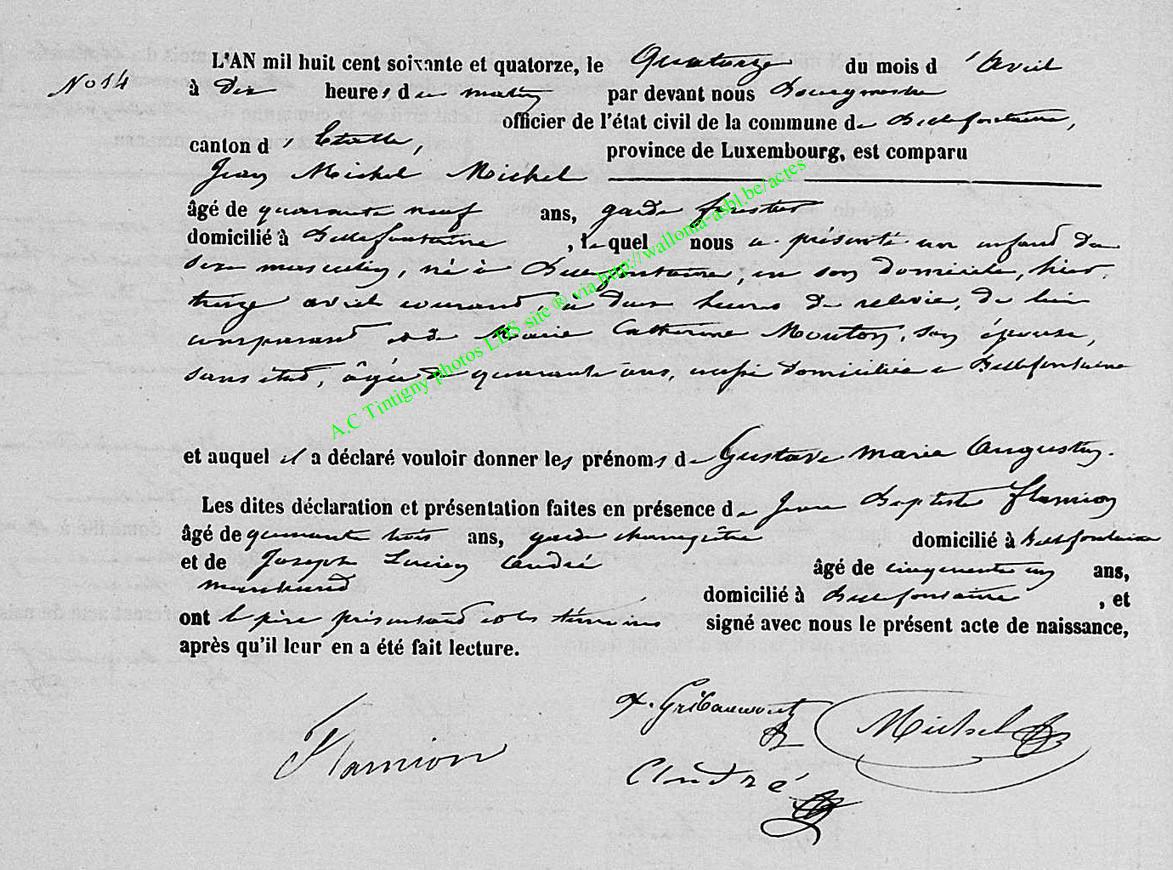 L'AN mil huit cent soixante et quatorze, le Quatorze du mois d'Avril
No 14
à Dix heures du matin par devant nous Bourgmestre
officier de l'état civil de la commune de Bellefontaine,
canton d'Etalle, province de Luxembourg, est comparu
Jean Michel Michel
âgé de quarante neuf ans, garde forestier
domicilié à Bellefontaine, lequel nous a présenté un enfant du
sexe masculin, né à Bellefontaine, en son domicile, hier,
treize avril courant, à deux heures de relevée, de lui
comparant et de Marie Catherine Mouton, son épouse,
sans état, âgée de quarante ans, aussi domiciliée à Bellefontaine
A.C Tintigny photos LDS site ® via http://wallonia-asbl.be/actes
et auquel il a déclaré vouloir donner les prénoms de Gustave Marie Augustin.
Les dites déclaration et présentation faites en présence de Jean Baptiste Flamion
âgé de quarante trois ans, garde champêtre domicilié à Bellefontaine
et de Joseph Lucien André âgé de cinquante un ans,
marchand domicilié à Bellefontaine, et
ont le père présentant et les témoins signé avec nous le présent acte de naissance,
après qu'il leur en a été fait lecture.
Gribaumont
Michel
Flamion
André